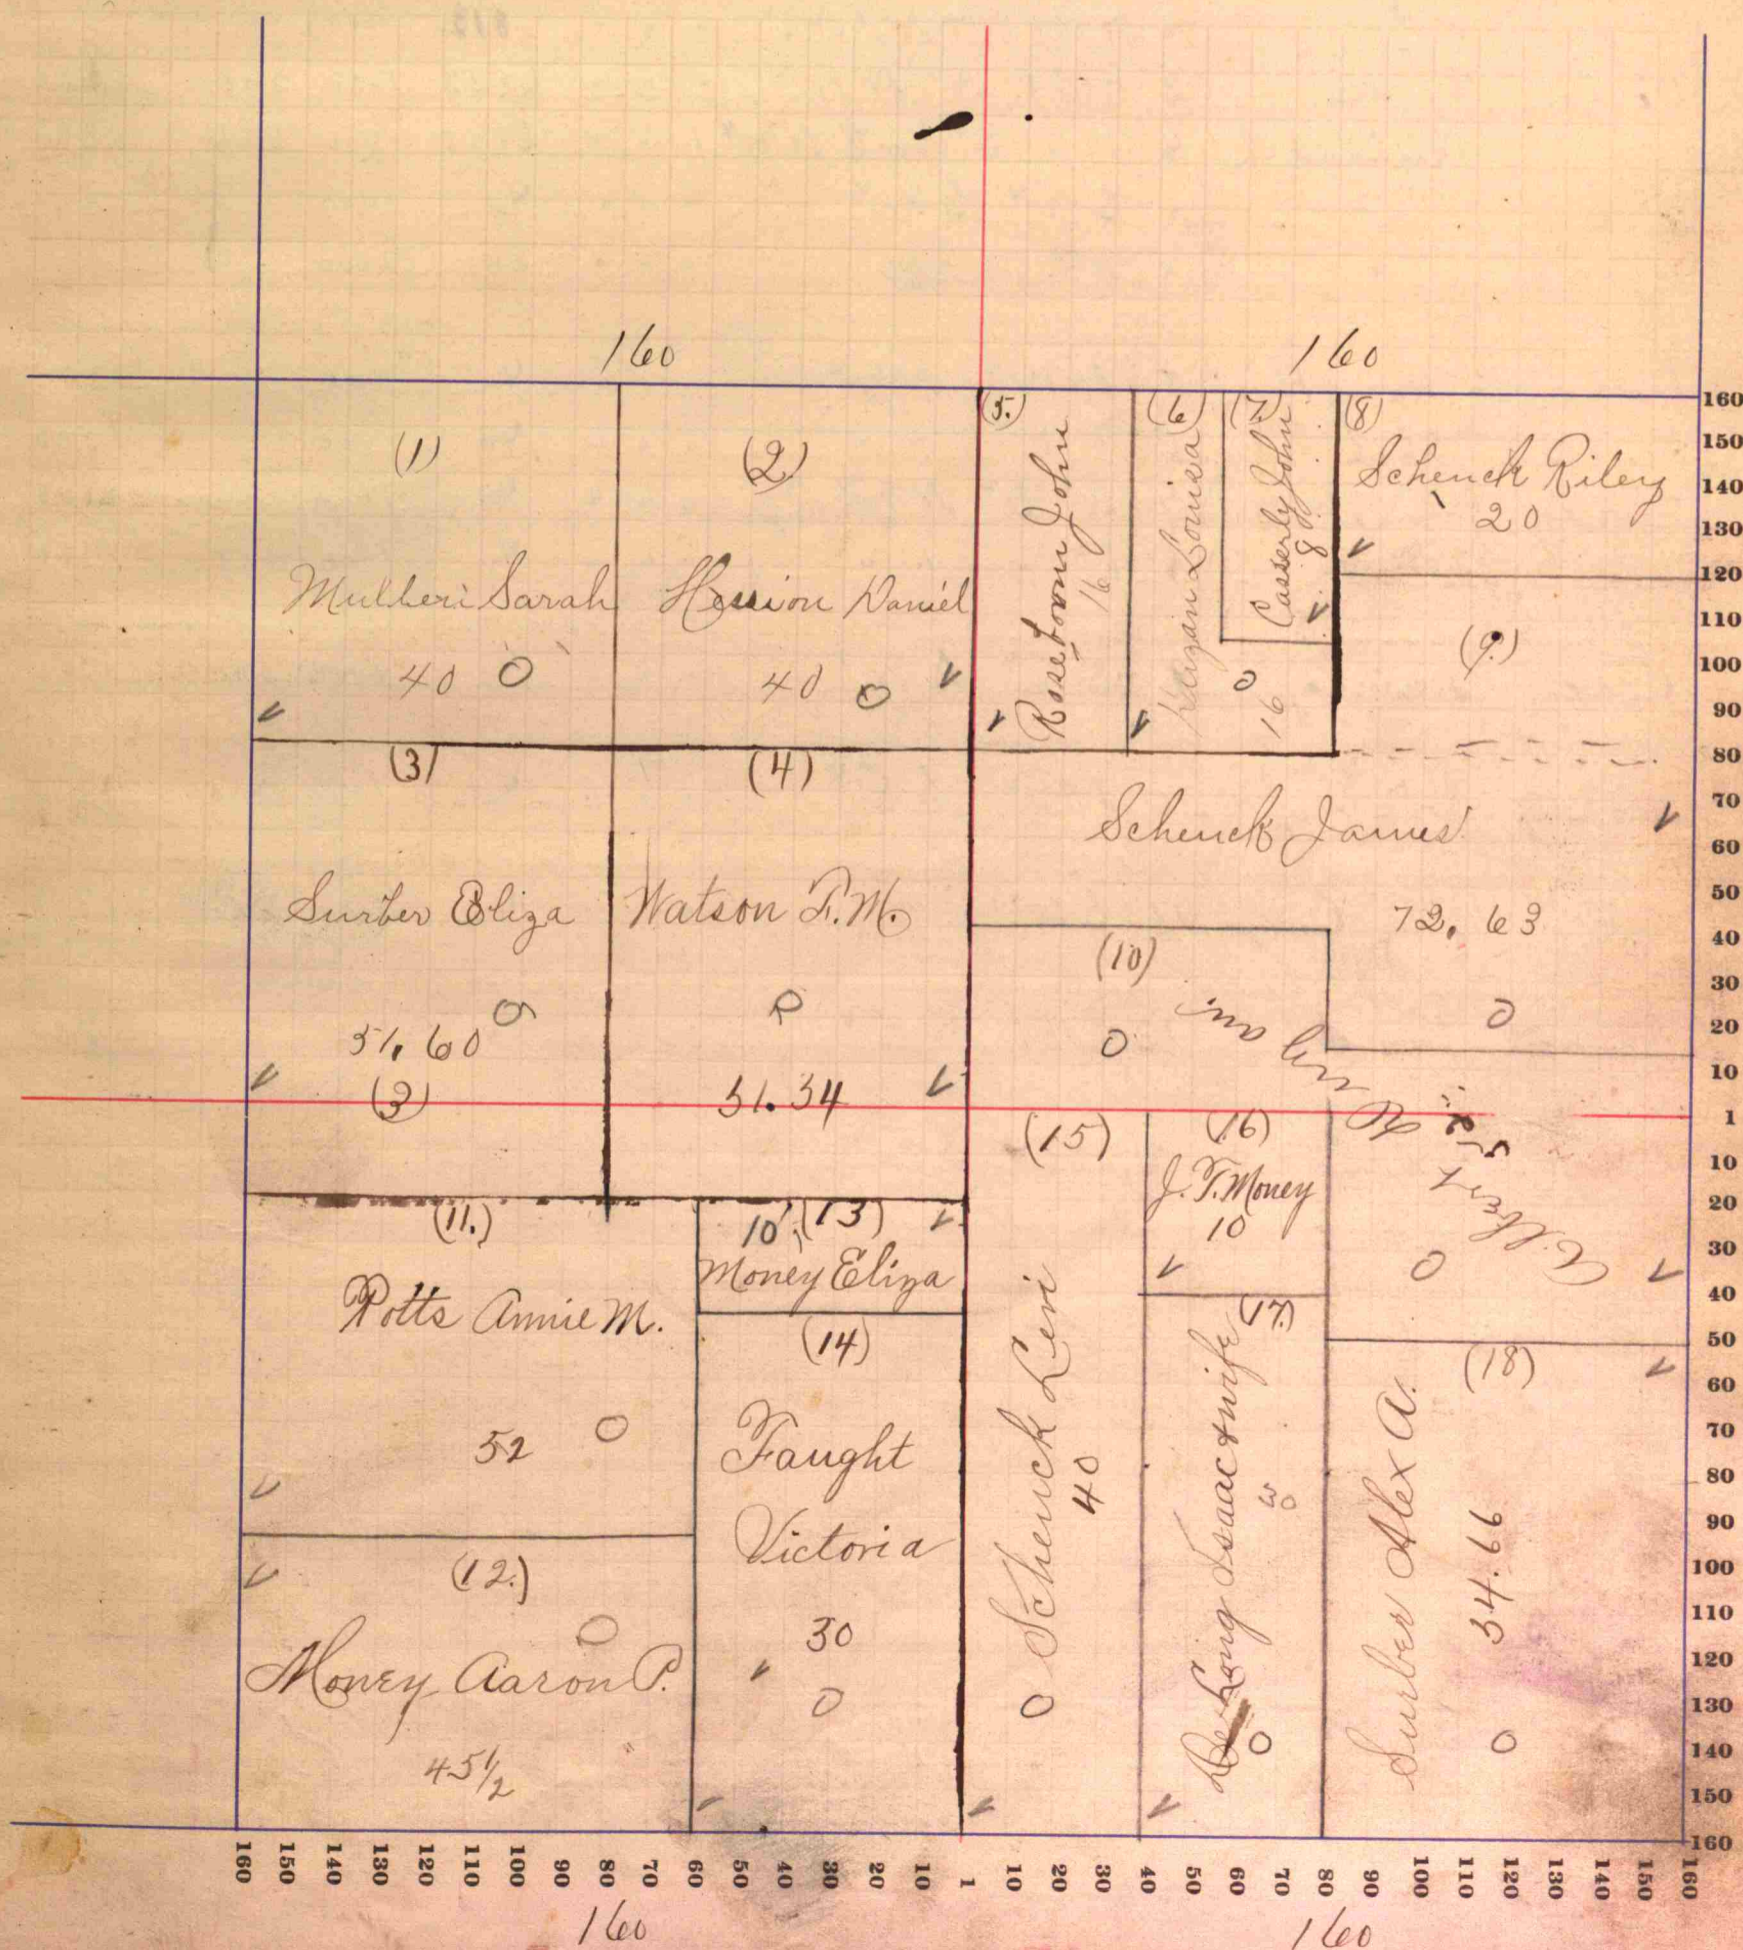 160
160
(1)
Mulleri Sarah
40 O
(2)
Hession Daniel
40 O
(5.)
Roseboom John
16
(6)
Louisa
O
16
(7.)
Casserly John
8
(8)
Schenck Riley
20
(9.)
Schenck James
72.63
O
(3)
Surber Eliza
51.60
(3)
(4)
Watson F. M.
51.34
(10)
O
Gilbert
O
(11.)
Potts Annie M.
52 O
(12.)
O
Money Aaron P.
45 1/2
10 (13)
Money Eliza
(14)
Faught
Victoria
30
O
(15)
O Schenck Levi
40
(16)
J. F. Money
10
(17.)
DeLong Isaac & wife
30
O
(18)
Surber Alex A.
34.66
O
160
150
140
130
120
110
100
90
80
70
60
50
40
30
20
10
1
10
20
30
40
50
60
70
80
90
100
110
120
130
140
150
160
160 150 140 130 120 110 100 90 80 70 60 50 40 30 20 10 1 10 20 30 40 50 60 70 80 90 100 110 120 130 140 150 160
160
160